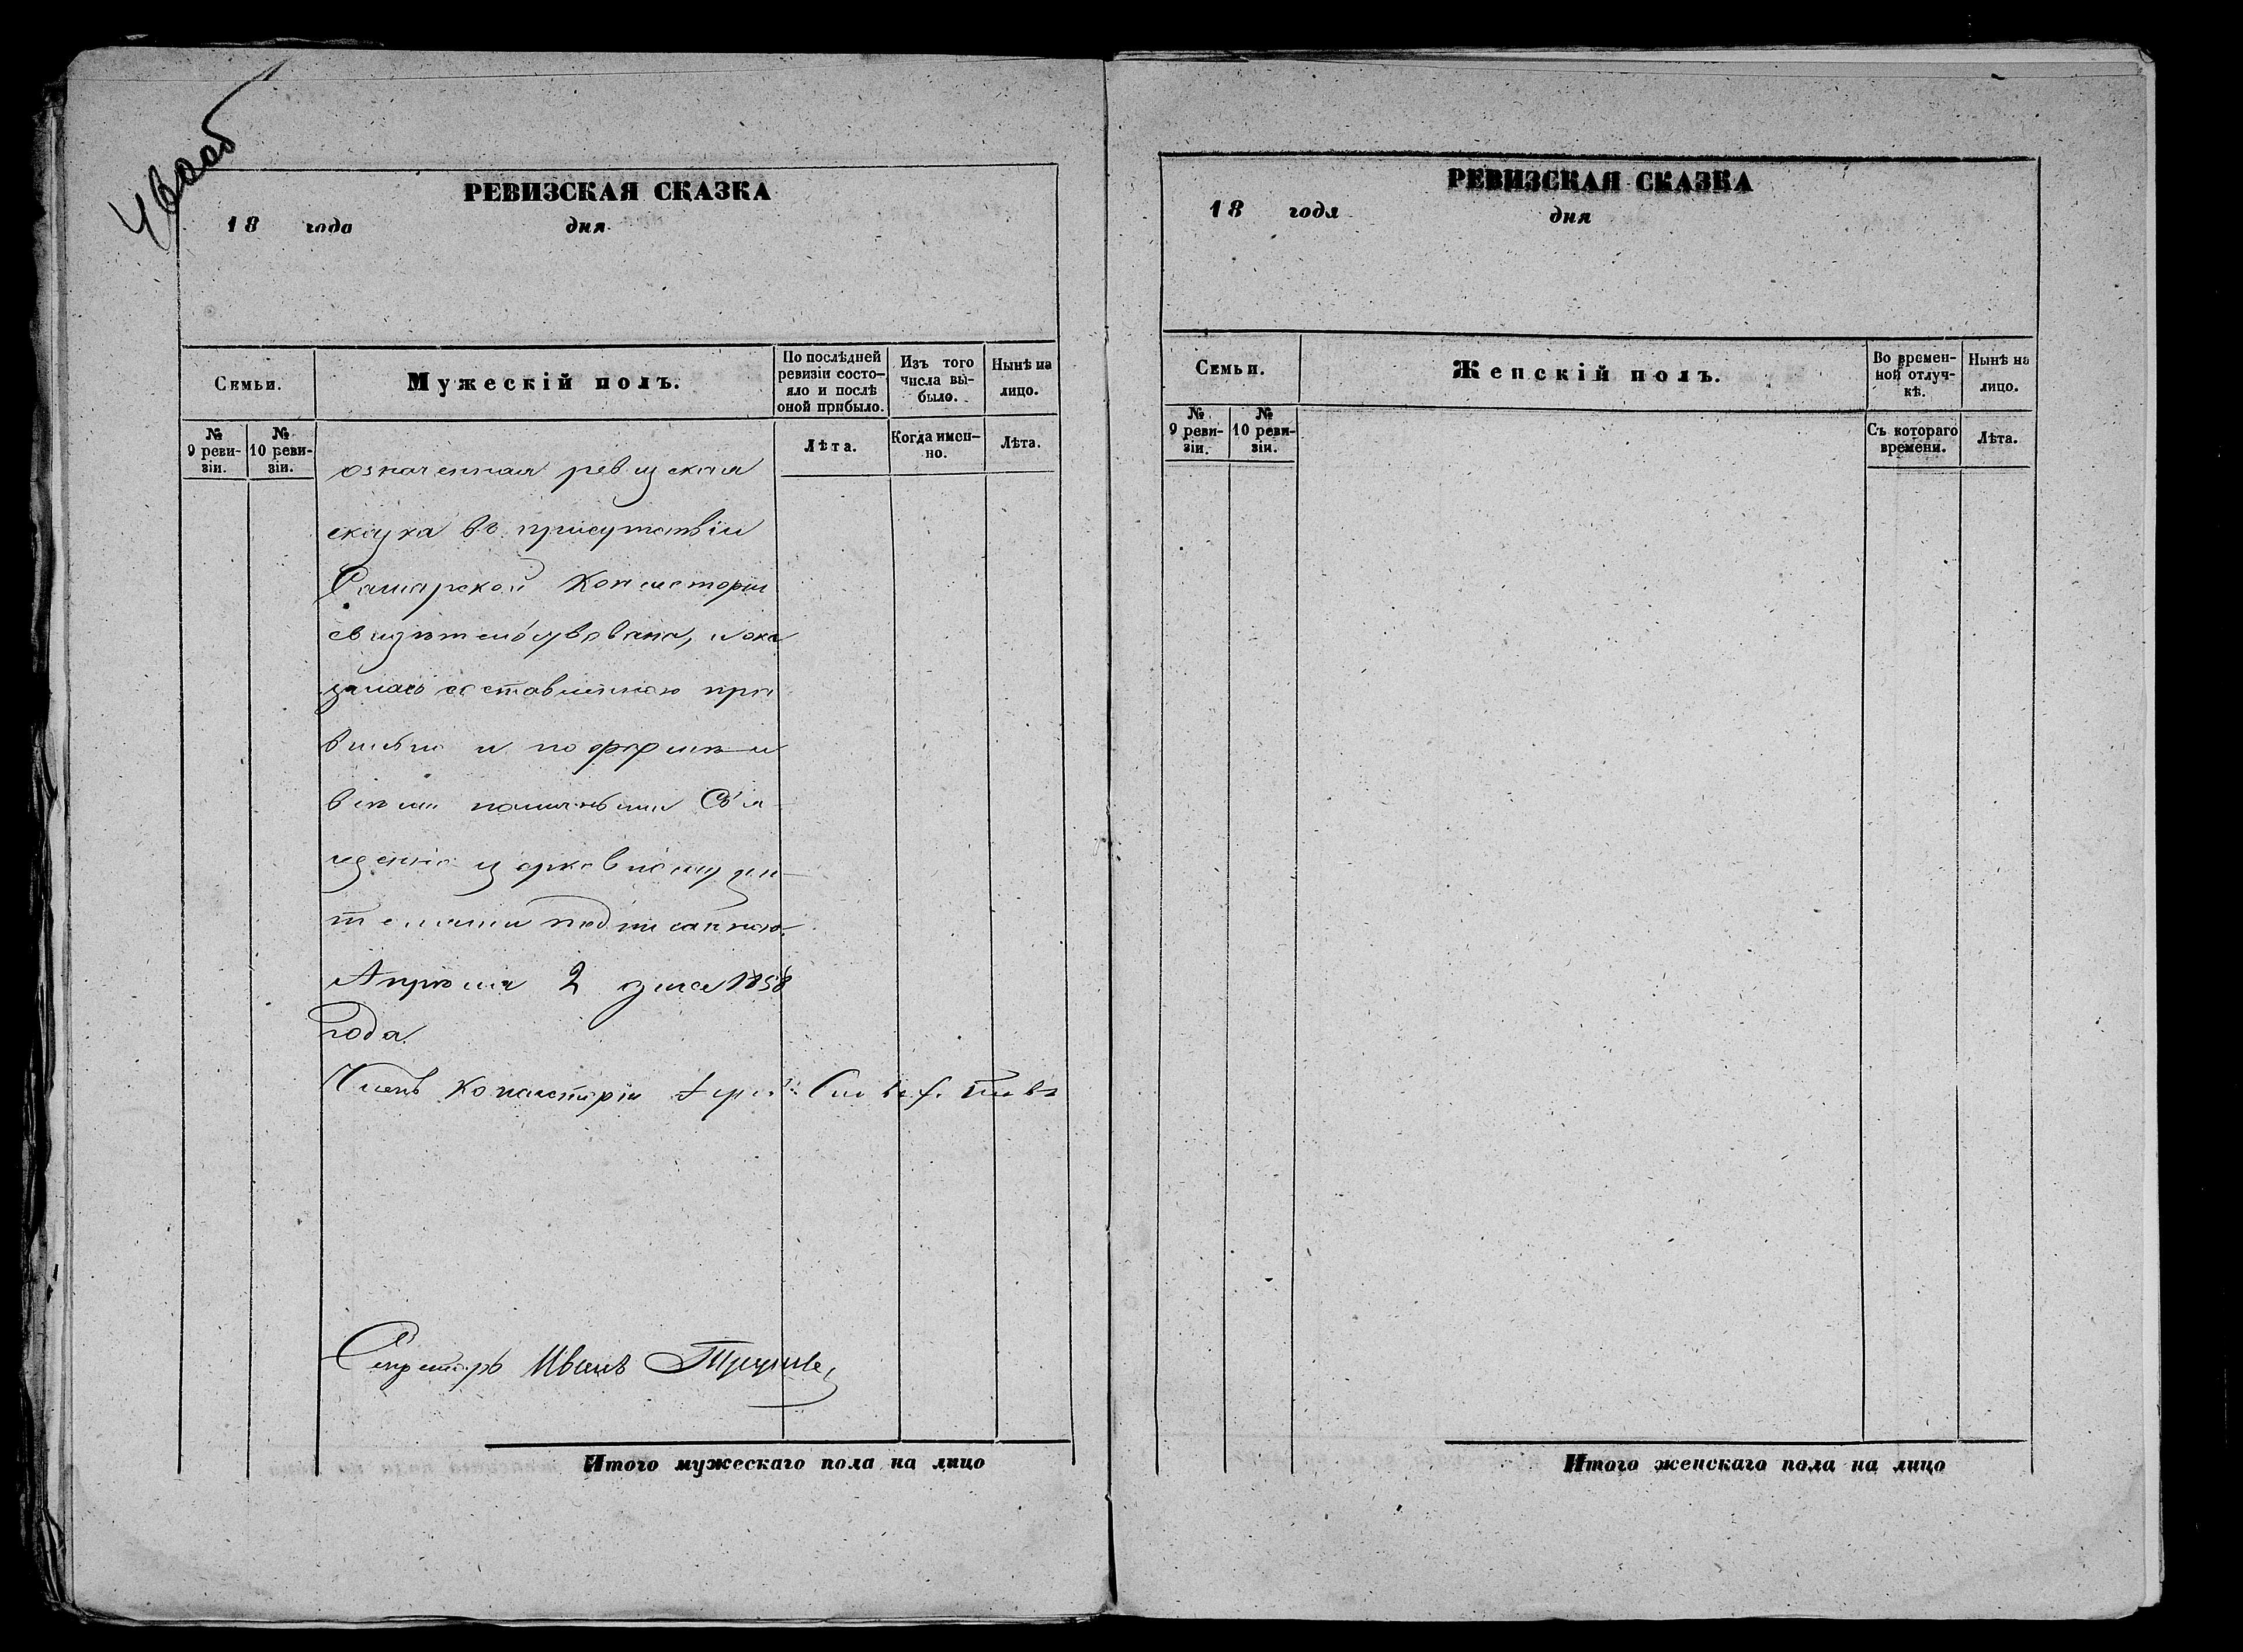 РЕВИЗСКАЯ СКАЗКА
18 года дня
Семьи.
Мужескій полъ.
По послѣдней ревизіи состо-
яло и послѣ
оной прибыло.
Изъ того
числа вы-
было.
Нынѣ на
лицо.
№
9 реви-
зіи.
№
10 реви-
зіи.
Лѣта.
Когда имен-
но.
Лѣта.
означенная ревизская
сказка въ присутствіи
Самарской Консисторіи
свидѣтельствована, и ока
залась составленною пра
вильно и по формѣ и
всѣми наличными Свя
щенно церковнослужи
телями подписанною.
Апрѣля 2 дня 1858
года.
Членъ Консисторіи
Секретарь Иванъ
Итого мужескаго пола на лицо
РЕВИЗСКАЯ СКАЗКА
18 года дня
Семьи.
Женскій полъ.
Во времен-
ной отлуч-
кѣ.
Нынѣ на
лицо.
№
9 реви-
зіи.
№
10 реви-
зіи.
Съ котораго
времени.
Лѣта.
Итого женскаго пола на лицо